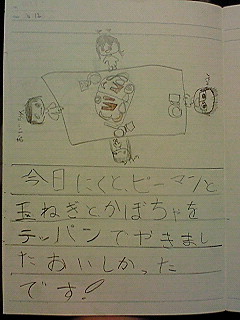 今日にくと、ピーマンと
玉ねぎとかぼちゃを
テッパンでやきまし
たおいしかった
です!